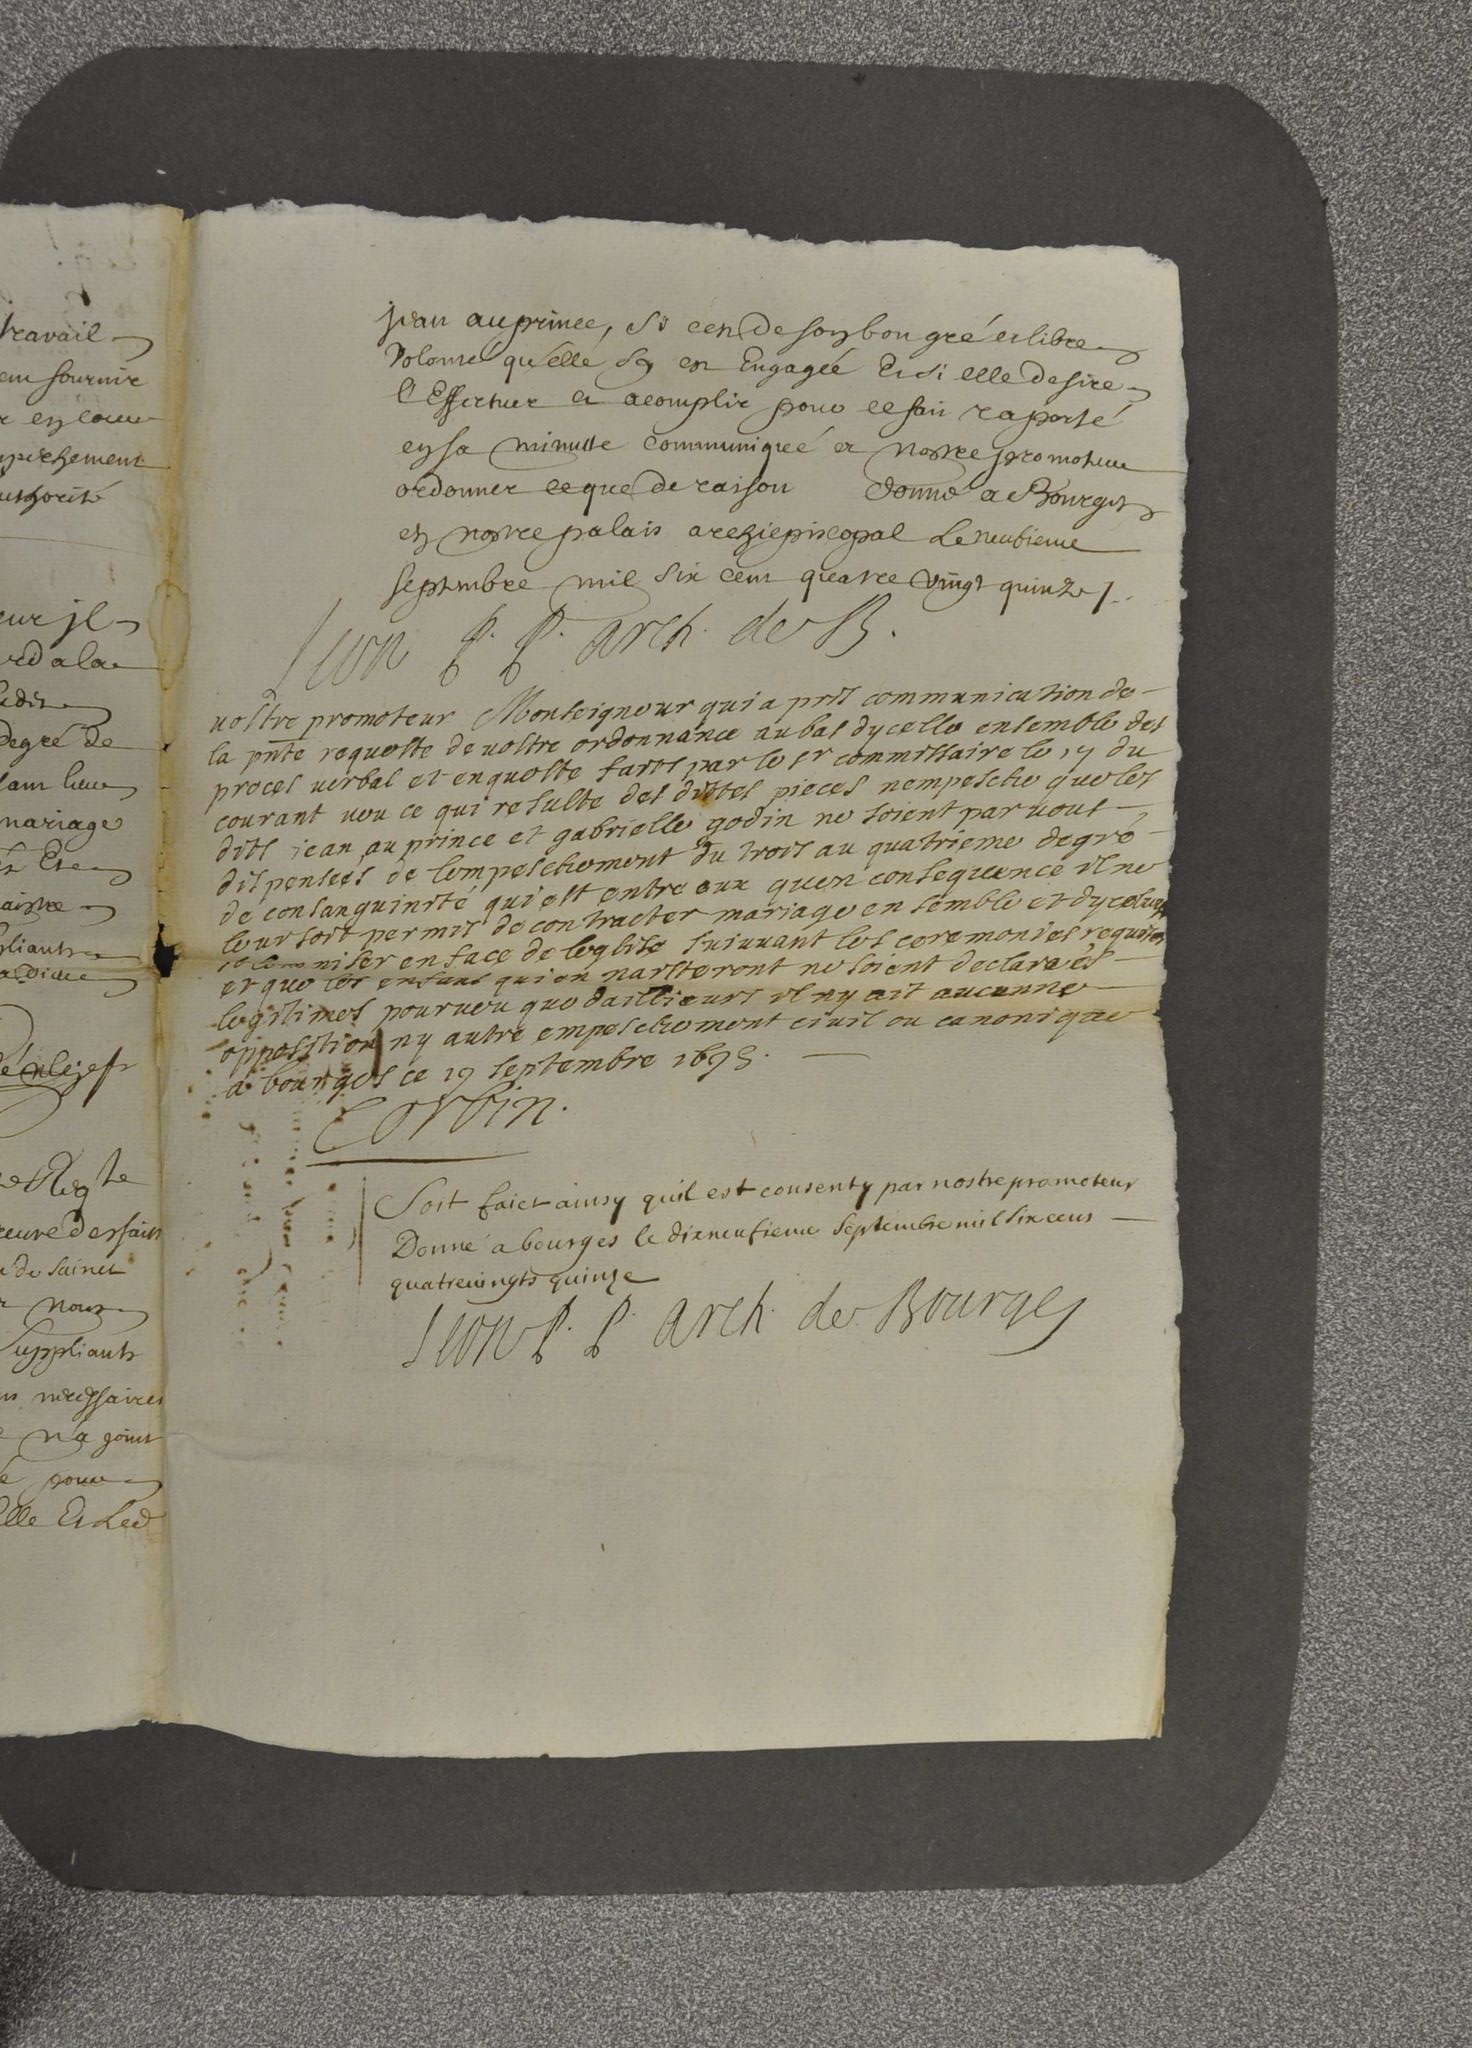 travail
fournir
en cour
authorité
eur il
degré de
mariage
de Sainct
nour
Suppliants
necessaires
n'a point
pour
elle Et Led
jean auprince, si cest de son bon gré et libre
Volonté qu'elle sy est Engagée Et si elle desire
l'Effectuer et acomplir pour ce fait raporté
en sa minutte communiqueé a nostre promoteur
ordonner ce que de raison Donné a Bourges
en nostre palais archiepiscopal Le neufieme
septembre mil six cent quatre vingt quinze /.
leon P. P. arch. de B.
vostre promoteur Monseigneur qui a pris communication de
la pnte requeste de vostre ordonnance au bas dycelle ensemble des
proces verbal et enqueste faits par le sr commissaire le 17 du
courant veu ce qui resulte des dittes pieces nempesche que les
dits jean auprince et gabrielle godin ne soient par vous
dispensés de lempeschement du trois au quatrieme degré
de consanguinité qui est entre eux quen consequence il ne
leur soit permis de contracter mariage ensemble et dyceluy
solemniser en face de leglise suivant les ceremonies requises
et que les enfans qui en naisteront ne soient declareés
legitimes pourveu que dailleurs il ny ait aucunne
opposition ny autre empeschement civil ou canonique
a bourges ce 19 septembre 1695.
Corbin.
Soit faict ainsy quil est consenty par nostre promoteur
Donné a bourges le dixneufieme Septembre mil six cens
quatrevingts quinze
leon P. P. arch. de Bourges